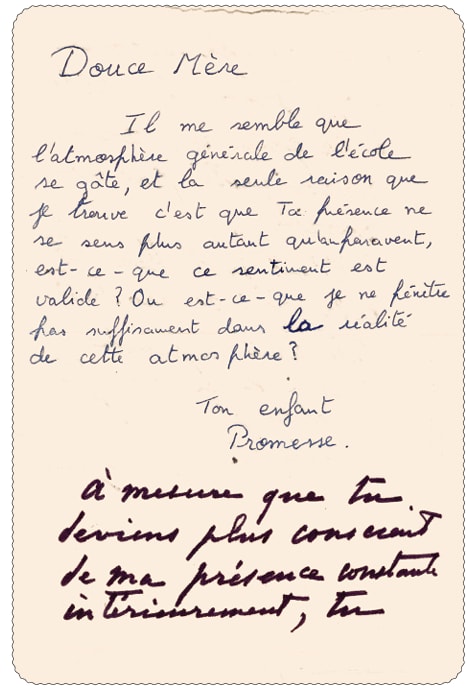 Douce Mère
Il me semble que
l'atmosphère générale de l'école
se gâte, et la seule raison que
je trouve c'est que Ta présence ne
se sens plus autant qu'auparavent,
est-ce-que ce sentiment est
valide ? Ou est-ce-que je ne pénètre
pas suffisament dans la réalité
de cette atmosphère ?
Ton enfant
Promesse.
à mesure que tu
deviens plus conscient
de ma présence constante
intérieurement, tu